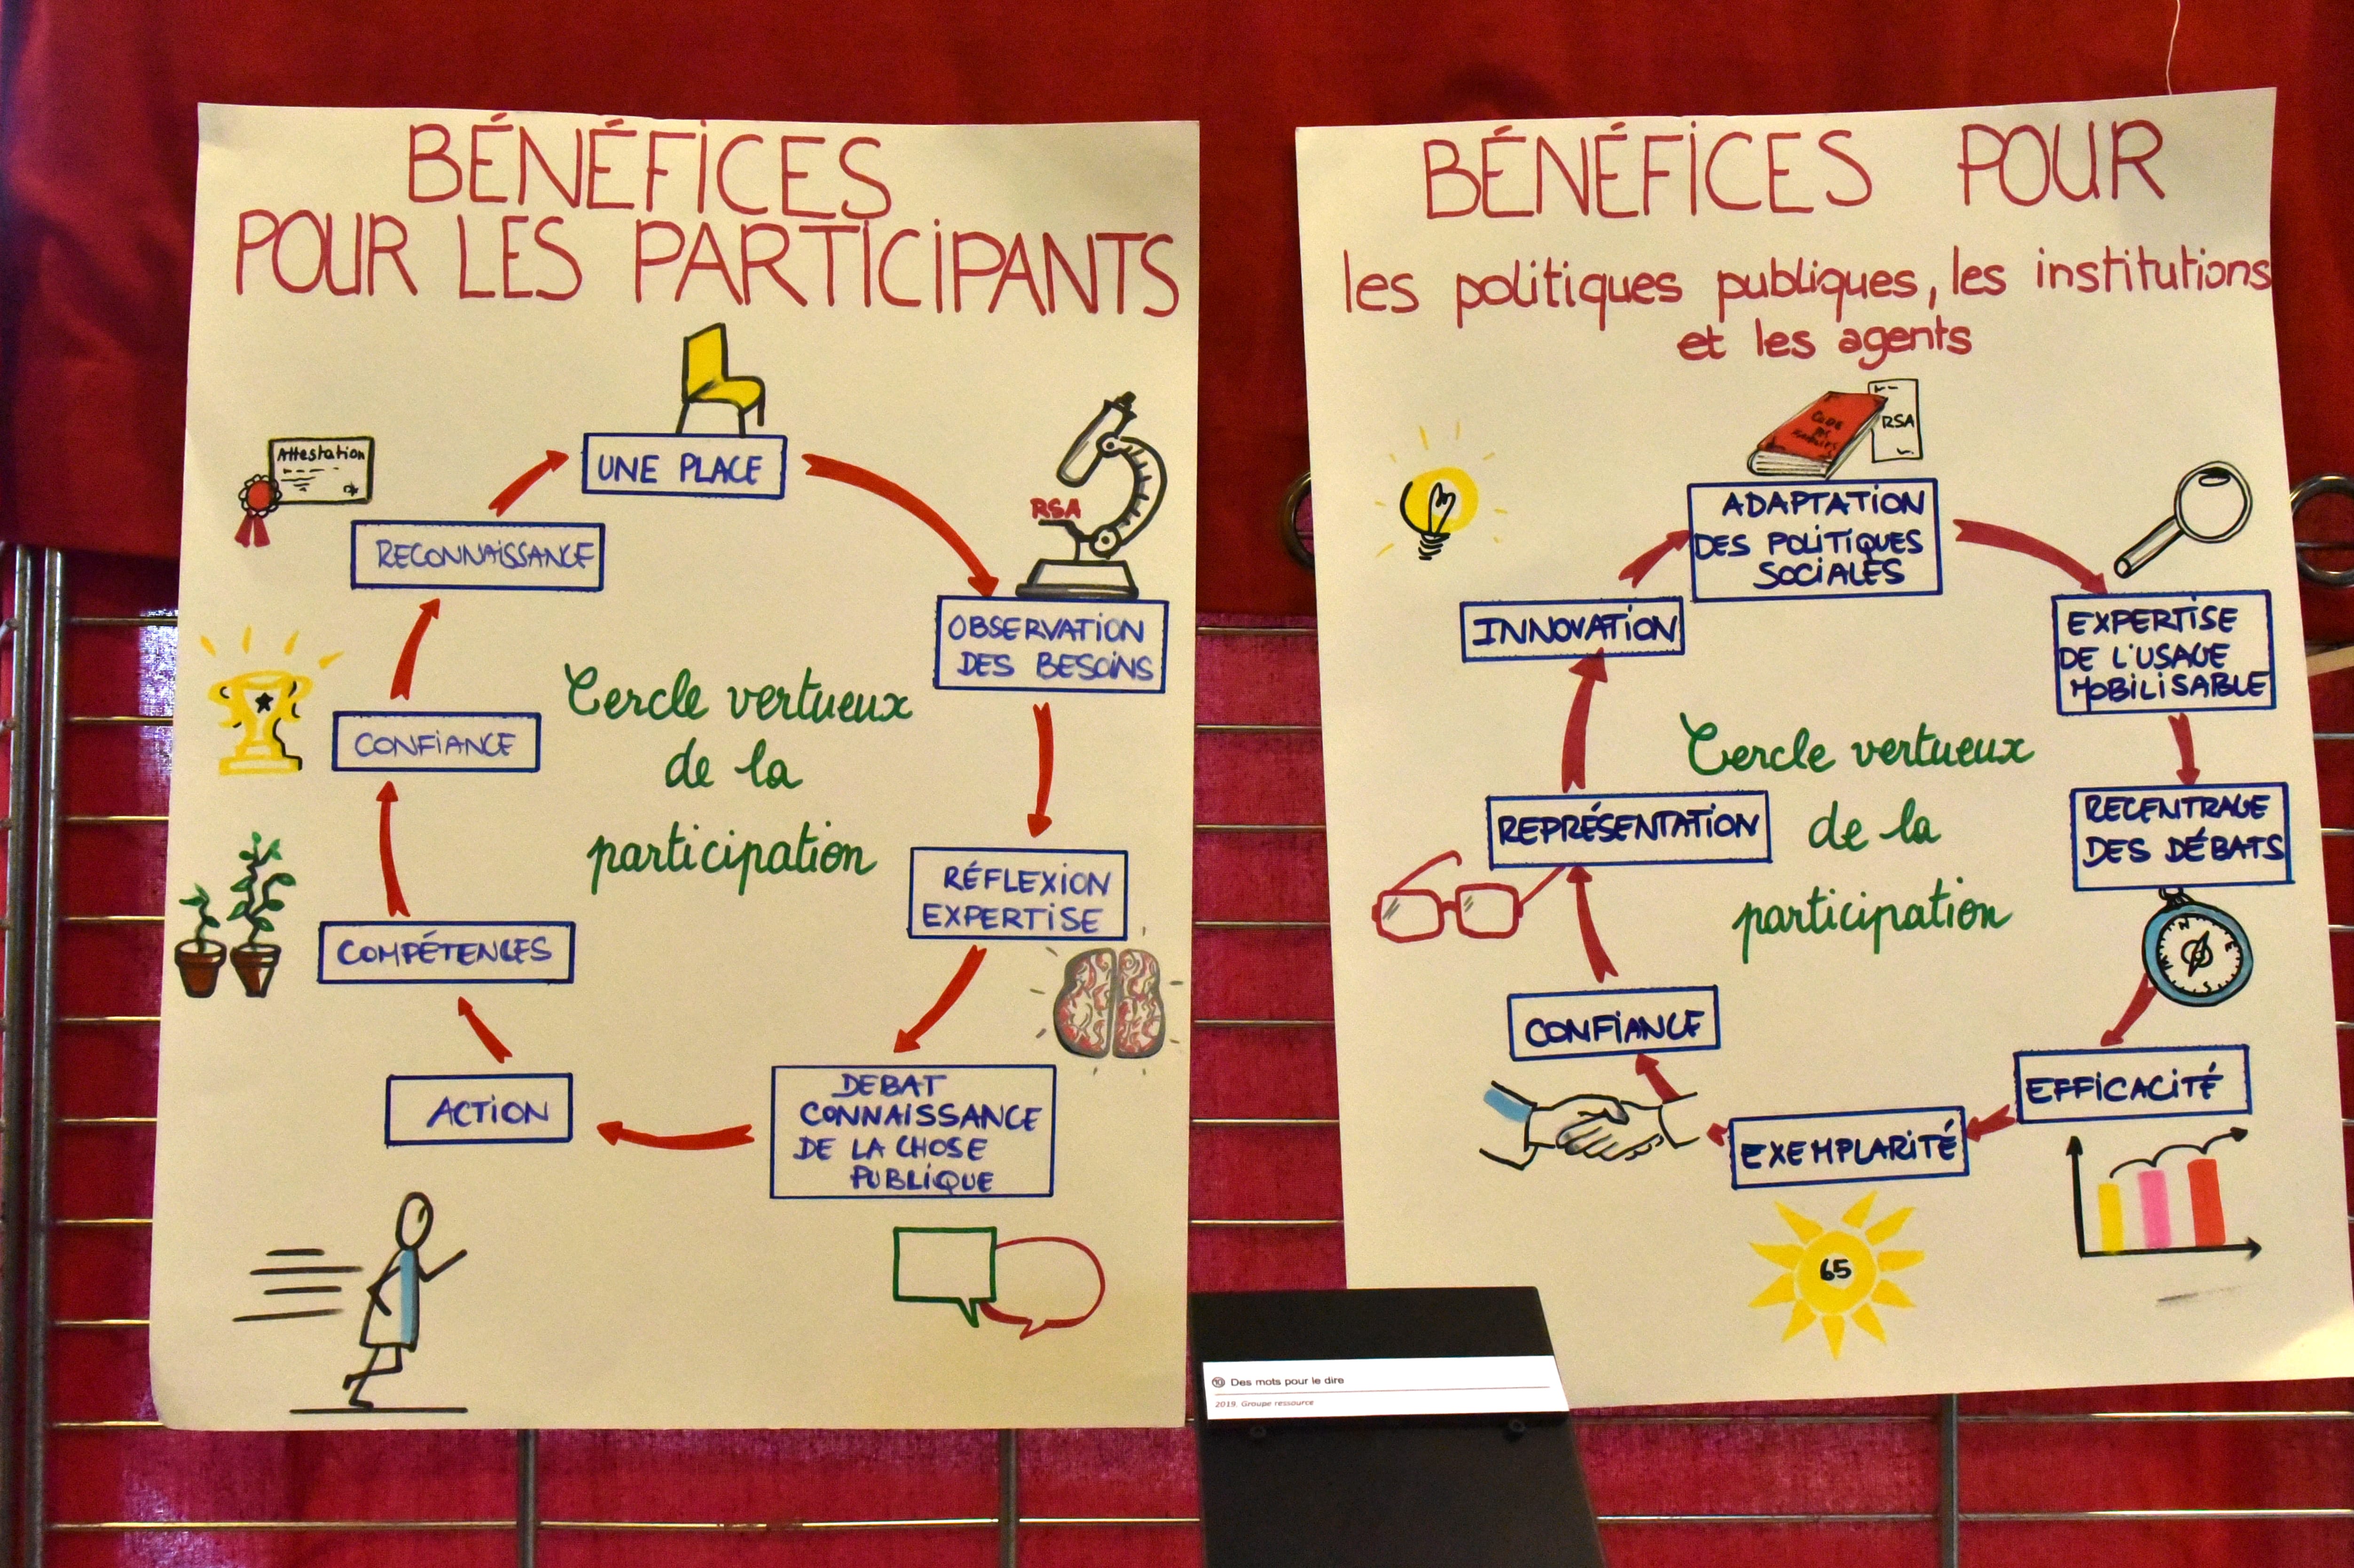 BÉNÉFICES
POUR LES PARTICIPANTS
UNE PLACE
RSA
OBSERVATION
DES BESOINS
RÉFLEXION
EXPERTISE
DEBAT
CONNAISSANCE
DE LA CHOSE
PUBLIQUE
ACTION
COMPÉTENCES
CONFIANCE
RECONNAISSANCE
Attestation
Cercle vertueux
de la
participation
BÉNÉFICES POUR
les politiques publiques, les institutions
et les agents
CODE
RSA
ADAPTATION
DES POLITIQUES
SOCIALES
EXPERTISE
DE L'USAGE
MOBILISABLE
RECENTRAGE
DES DÉBATS
N
E
S
W
EFFICACITÉ
EXEMPLARITÉ
65
CONFIANCE
REPRÉSENTATION
INNOVATION
Cercle vertueux
de la
participation
10 Des mots pour le dire
2019. Groupe ressource